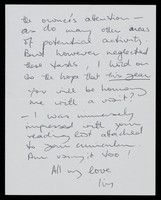 the owner's attention —
as do many other areas
of potential activity.
But however neglected
these tasks, I hold on
to the hope that this year
you will be honouring
me with a visit?
— I was immensely
impressed with your
reading list attached
to your curriculum
Am using it too!
All my love